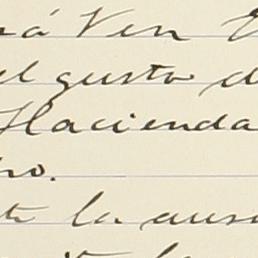 rá Ven
el gusto d
Hacienda
ro.
te la aus